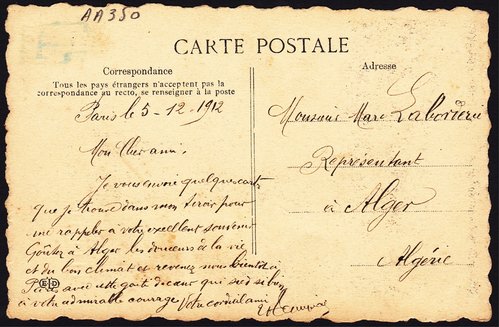 AA350
CARTE POSTALE
Correspondance
Tous les pays étrangers n'acceptent pas la
correspondance au recto, se renseigner à la poste
Paris le 5-12-1912
Mon Cher ami,
Je vous envoie quelques cartes
que je trouve dans mon tiroir pour
me rappeler à votre excellent souvenir
Goûtez à Alger les douceurs de la vie
et du bon climat et revenez nous bientôt à
Paris avec cette gaité de cœur qui sied si bien
à votre admirable courage Votre cordial ami
ED
Adresse
Monsieur Marc Laborierie
Représentant
à Alger
Algérie